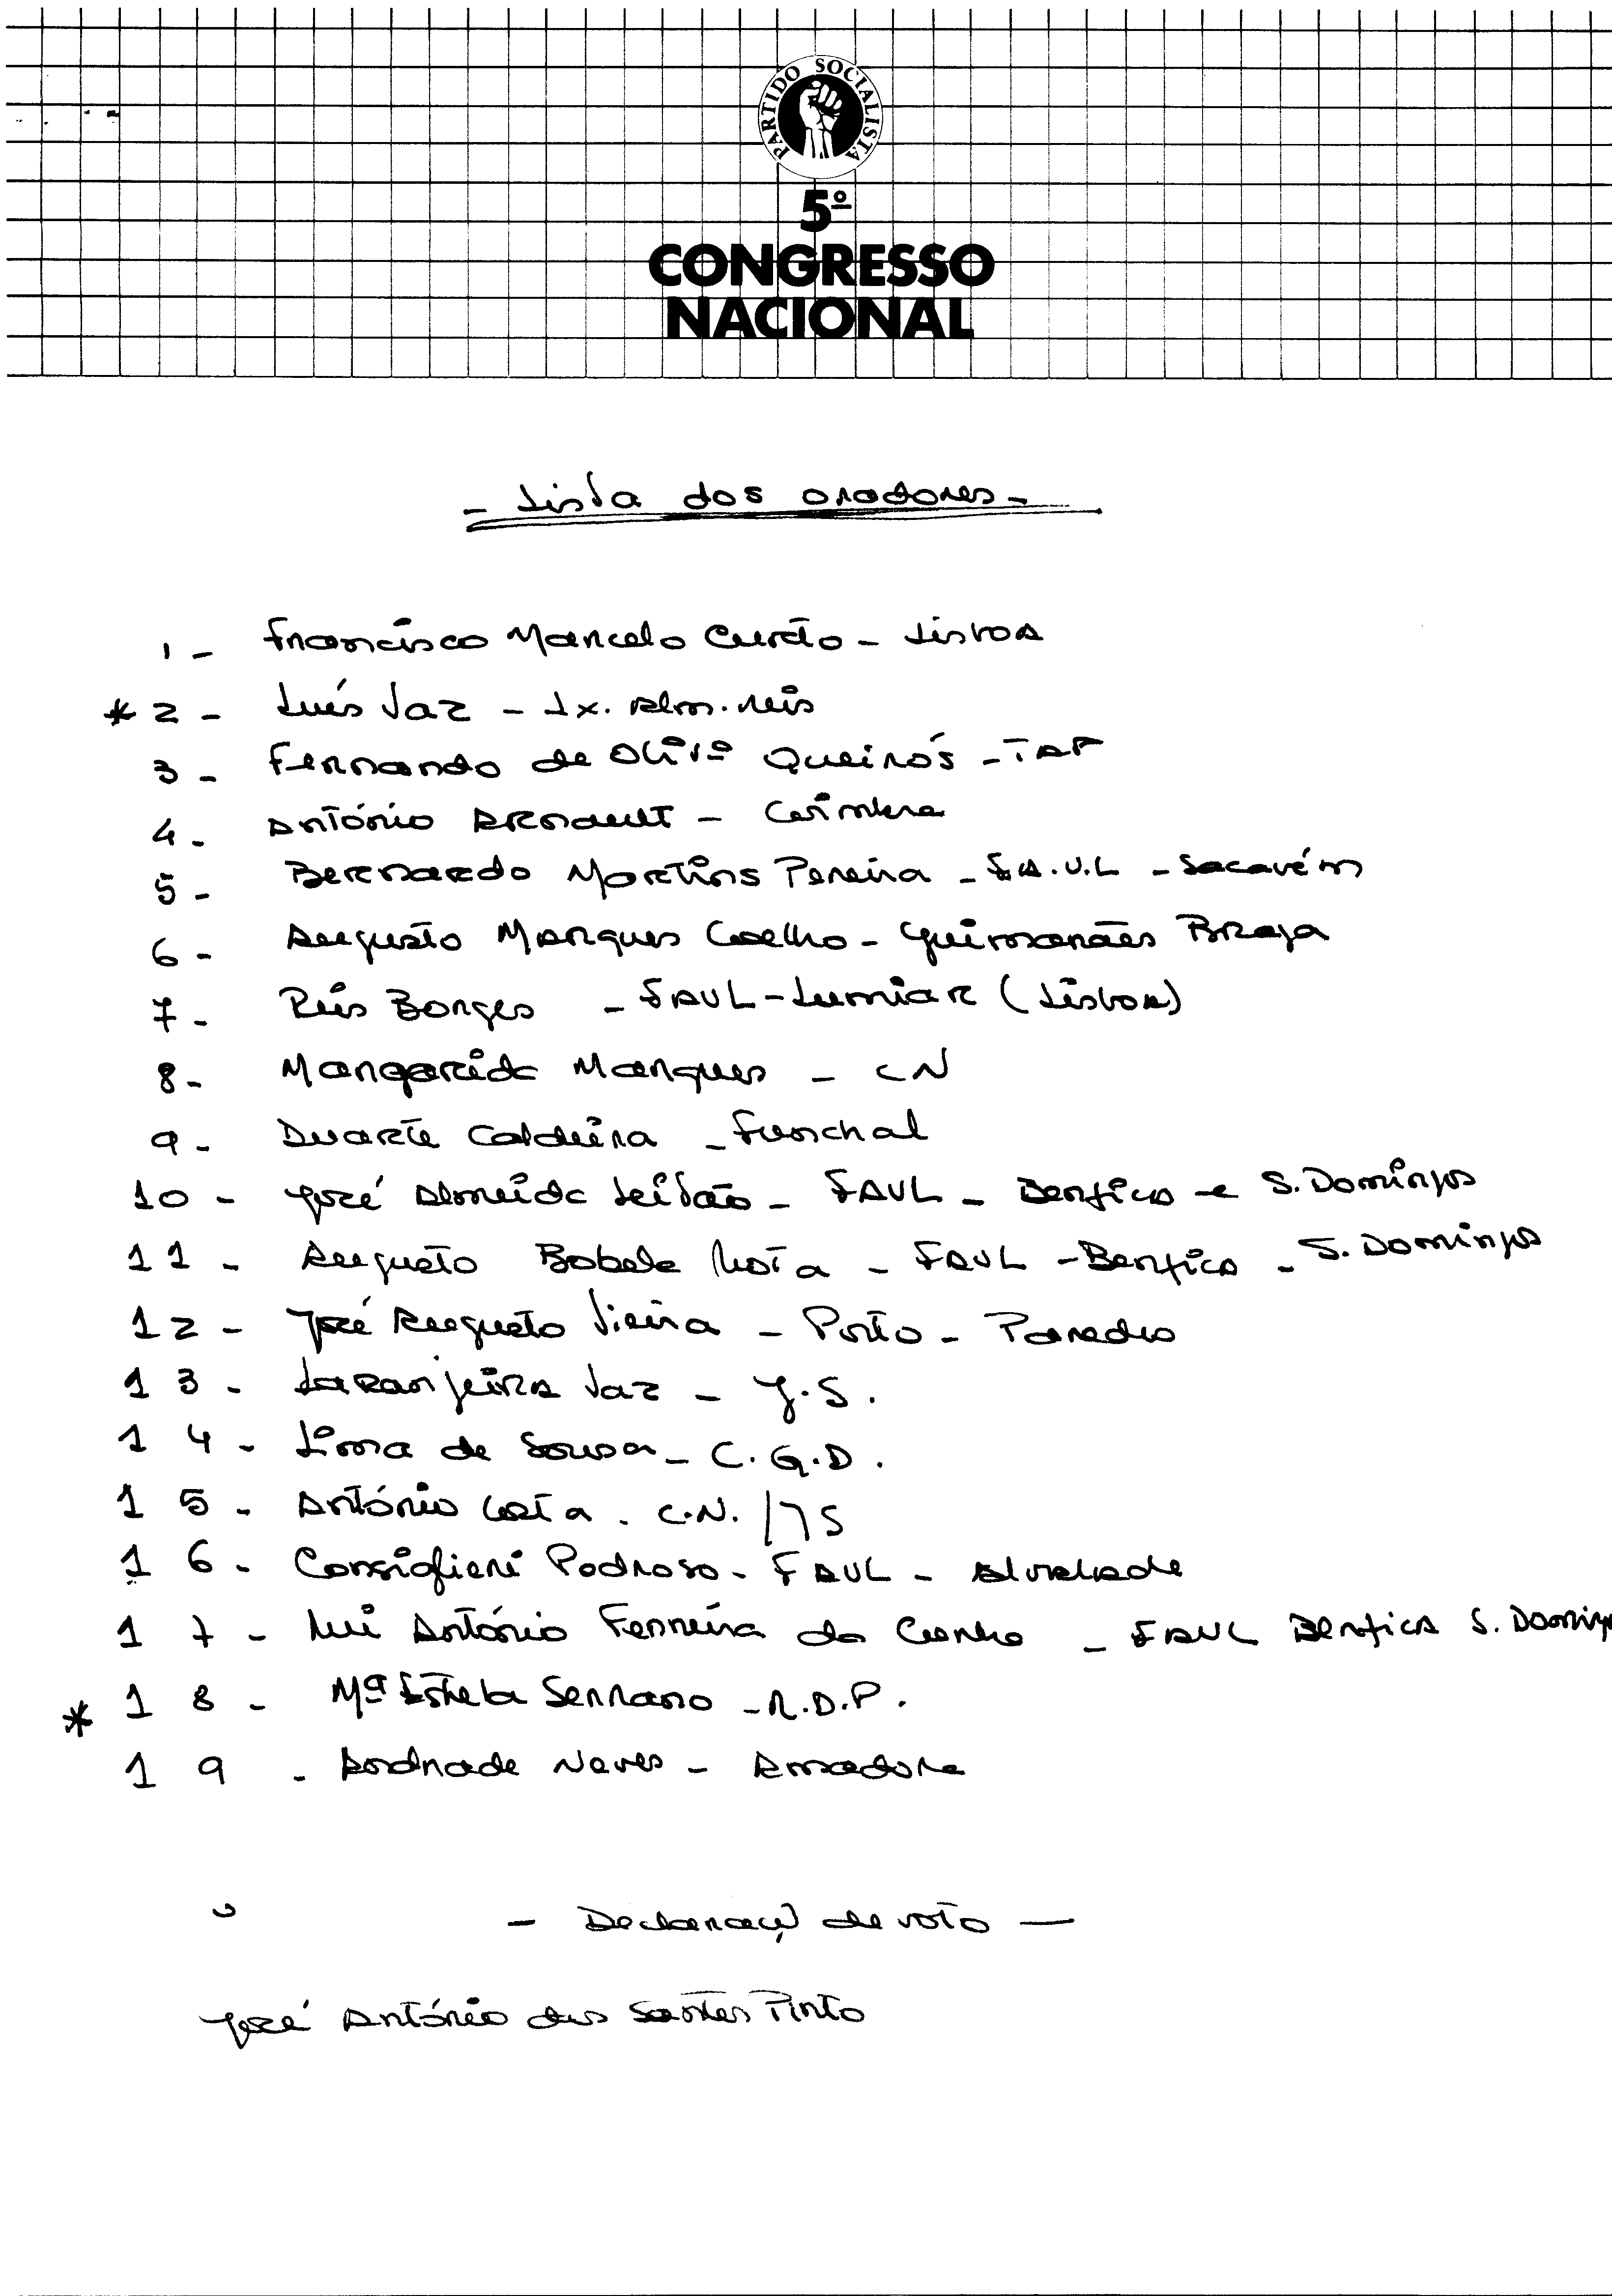 PARTIDO SOCIALISTA
5º
CONGRESSO
NACIONAL
- Lista dos oradores -
1 - Francisco Marcelo Curto - Lisboa
* 2 - Luís Vaz - Lx. Alm. Reis
3 - Fernando de Olivª Queirós - TAP
4 - António Arnault - Coimbra
5 - Bernardo Martins Pereira - F.A.U.L - Sacavém
6 - Augusto Marques Coelho - Guimarães Braga
7 - Reis Borges - FAUL - Lumiar (Lisboa)
8 - Margarida Marques - CN
9 - Duarte Caldeira - Funchal
10 - José Almeida Leitão - FAUL - Benfica e S. Domingos
11 - Augusto Bobela Mota - FAUL - Benfica - S. Domingos
12 - José Augusto Vieira - Porto - Paredes
13 - Laranjeira Vaz - J.S.
14 - Lima de Sousa - C.G.D.
15 - António Costa - C.N. / JS
16 - Consiglieri Pedroso - FAUL - Alvalade
17 - Rui António Ferreira da Cunha - FAUL Benfica S. Domingos
* 18 - Mª Estrela Serrano - R.D.P.
19 - Andrade Neves - Amadora
- Declaração de voto -
José António dos Santos Pinto